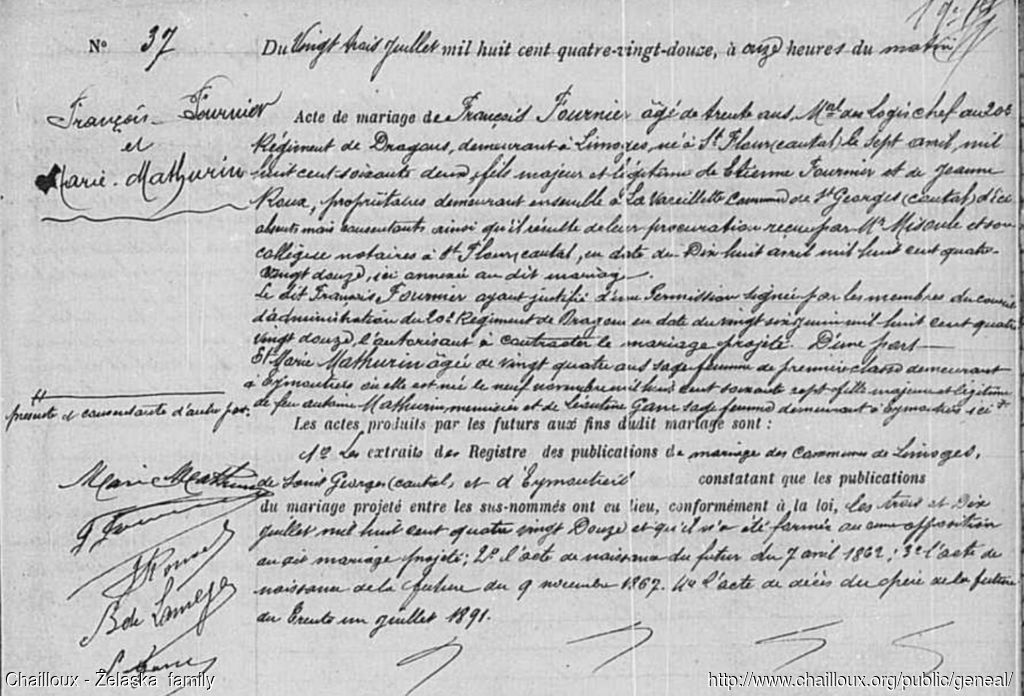 N° 37
Du Vingt trois Juillet mil huit cent quatre-vingt-douze, à onze heures du matin
François Fournier
et
Marie Mathurin
Acte de mariage de François Fournier âgé de trente ans, Mal des Logis chef au 20e
Régiment de Dragons, demeurant à Limoges, né à St Flour (cantal) le sept avril, mil
huit cent soixante deux, fils majeur et légitime de Etienne Fournier et de Jeanne
Roux, propriétaires demeurant ensemble à La Vareillette Commune de St Georges (cantal) d'ici
absents mais consentants ainsi qu'il résulte de leur procuration reçue par Me Misoule et son
collègue notaires à St Flour (cantal, en date du Dix huit avril mil huit cent quatre-
vingt douze, ici annexé au dit mariage.
Le dit François Fournier ayant justifié d'une Permission signée par les membres du conseil
d'administration du 20e Régiment de Dragons en date du vingt juin mil huit cent quatre
vingt douze l'autorisant à contracter le mariage projeté. D'une part
Et Marie Mathurin âgée de vingt quatre ans sage femme de première classe demeurant
à Eymoutiers où elle est née le neuf novembre mil huit cent soixante sept fille majeure et légitime
de feu antoine Mathurin, menuisier et de Léontine sage femme demeurant à Eymoutiers ici
présente et consentante d'autre part.
Les actes produits par les futurs aux fins dudit mariage sont :
1° Les extraits des Registre des publications de mariage des Communes de Limoges,
de Saint Georges (cantal, et d'Eymoutiers constatant que les publications
du mariage projeté entre les sus-nommés ont eu lieu, conformément à la loi, les trois et Dix
juillet mil huit cent quatre vingt Douze et qu'il n'a été formée aucune opposition
au dit mariage projeté; 2° l'acte de naissance du futur du 7 avril 1862; 3° l'acte de
naissance de la future du 9 novembre 1867. 4° l'acte de décès du père de la future
du Trente un juillet 1891.
Marie Mathurin
Chailloux - Żelaska family
http://www.chailloux.org/public/geneal/